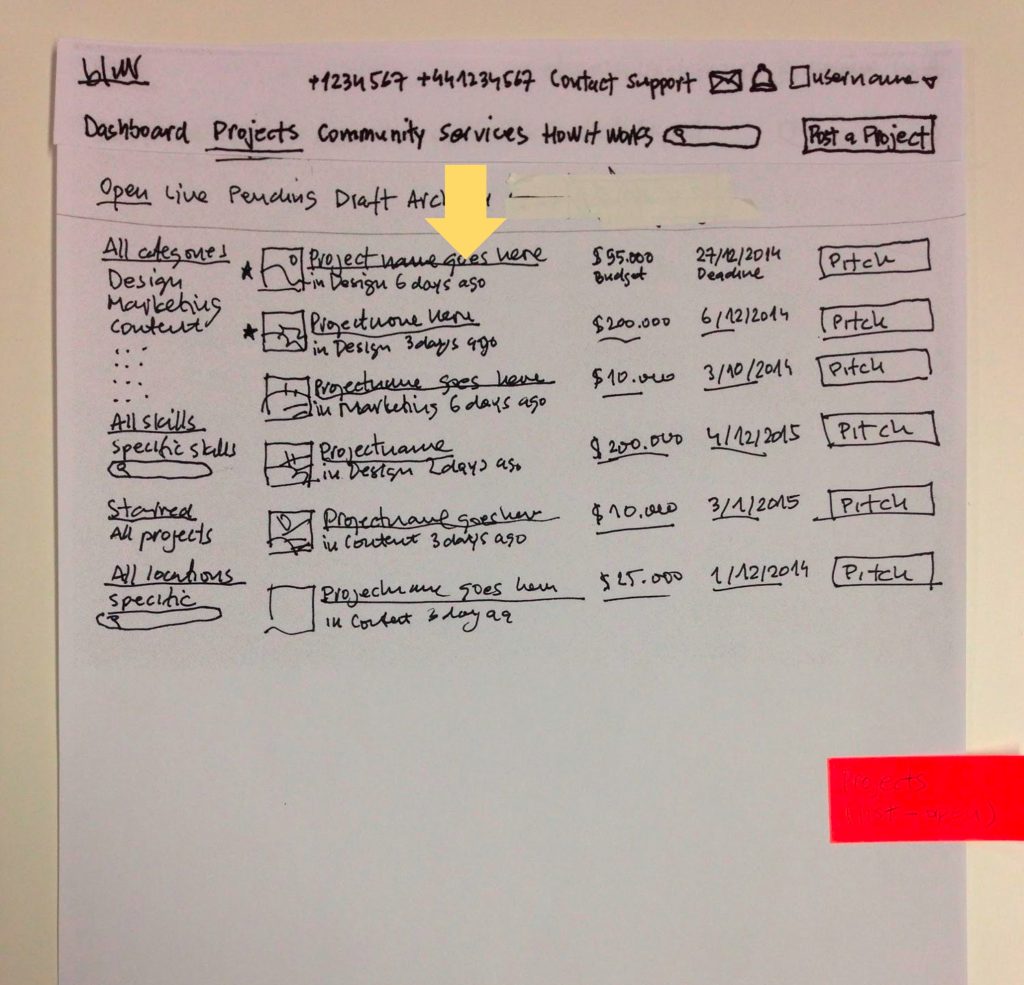 blur
+1234567 +441234567 Contact support username
Dashboard Projects Community Services How it works Post a Project
Open Live Pending Draft
All categories
Design
Marketing
Content
...
...
...
All skills
specific skills
Starred
All projects
All locations
specific
Project name goes here $95.000 27/12/2014 Pitch
in Design 6 days ago Budget Deadline
Project name here $200.000 6/12/2014 Pitch
in Design 3 days ago
Projectname goes here $10.000 3/10/2014 Pitch
in Marketing 6 days ago
Projectname $200.000 4/12/2015 Pitch
in Design 2 days ago
Projectname goes here $10.000 3/1/2015 Pitch
in Content 3 days ago
Projectname goes here $25.000 1/12/2014 Pitch
in Content 3 day ag
Projects